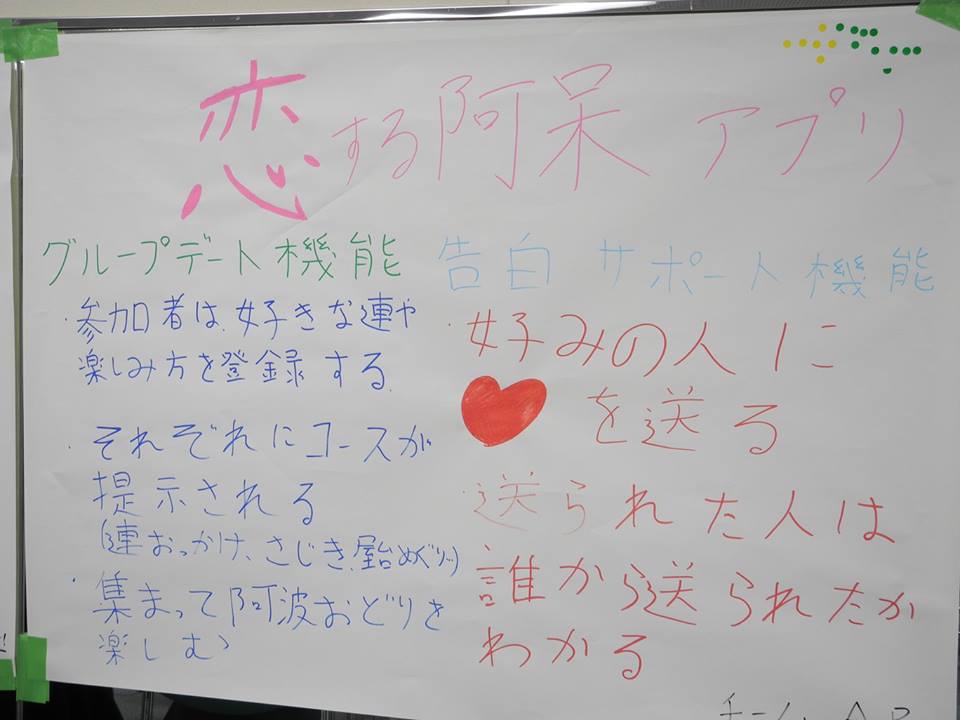 恋する阿呆 アプリ
グループデート機能
・参加者は、好きな連や
楽しみ方を登録する。
・それぞれにコースが
提示される
(連おっかけ、さじき、屋台めぐり…)
・集まって阿波おどりを
楽しむ
告白 サポート機能
・好みの人に
♥を送る
・送られた人は
誰から送られたか
わかる
チーム